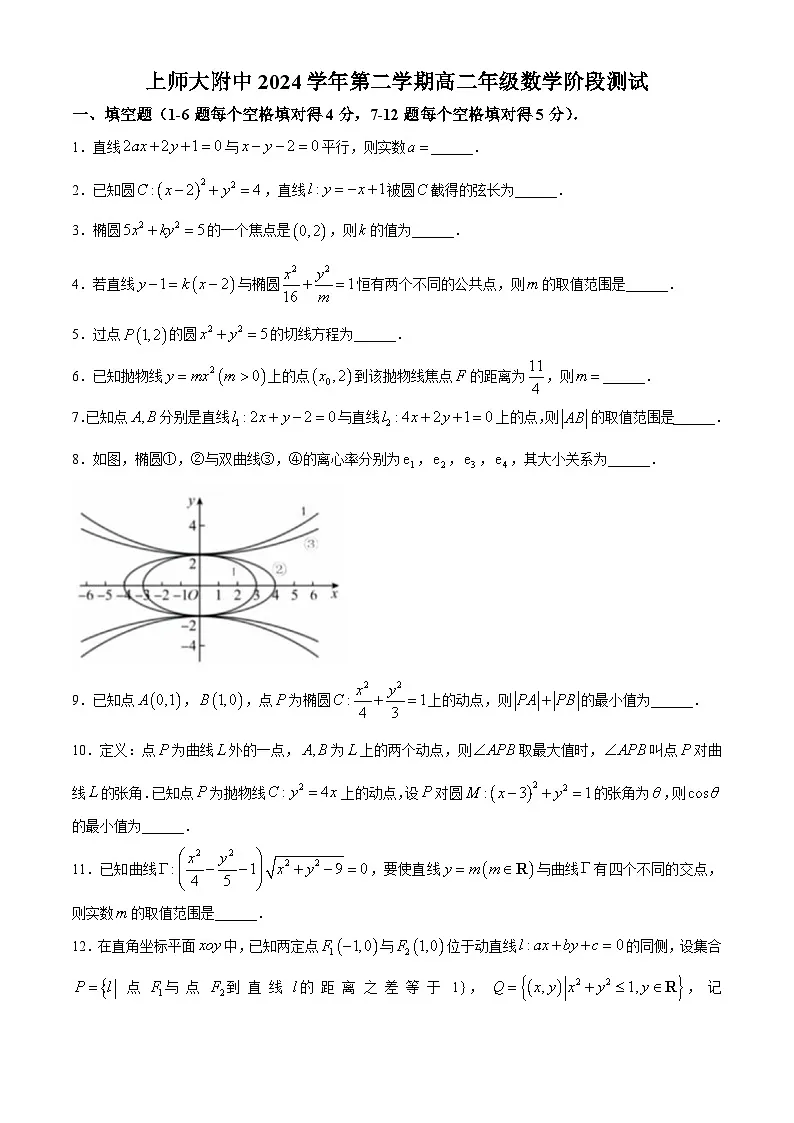 上师大附中 2024 学年第二学期高二年级数学阶段测试
一、填空题（1-6 题每个空格填对得 4 分，7-12 题每个空格填对得 5 分）.
1. 直线 2ax+2y+1=0 与 x−y−2=0 平行，则实数 a = ______.
2. 已知圆 C:(x−2)²+y²=4，直线 l:y=−x+1 被圆 C 截得的弦长为______.
3. 椭圆 5x²+ky²=5 的一个焦点是 (0,2)，则 k 的值为______.
4. 若直线 y−1=k(x−2) 与椭圆 x²/16+y²/m=1 恒有两个不同的公共点，则 m 的取值范围是______.
5. 过点 P(1,2) 的圆 x²+y²=5 的切线方程为______.
6. 已知抛物线 y=mx²(m>0) 上的点 (x₀,2) 到该抛物线焦点 F 的距离为 11/4，则 m = ______.
7.已知点 A,B 分别是直线 l₁:2x+y−2=0 与直线 l₂:4x+2y+1=0 上的点,则 |AB| 的取值范围是______.
8. 如图，椭圆①，②与双曲线③，④的离心率分别为 e₁，e₂，e₃，e₄，其大小关系为______.
y
4
2
−2
−4
1
③
1
②
−6 −5 −4 −3 −2 −1O 1 2 3 4 5 6 x
9. 已知点 A(0,1)，B(1,0)，点 P 为椭圆 C:x²/4+y²/3=1 上的动点，则 |PA|+|PB| 的最小值为______.
10. 定义：点 P 为曲线 L 外的一点，A,B 为 L 上的两个动点，则∠APB 取最大值时，∠APB 叫点 P 对曲
线 L 的张角.已知点 P 为抛物线 C:y²=4x 上的动点,设 P 对圆 M:(x−3)²+y²=1 的张角为 θ,则 cosθ
的最小值为______.
11. 已知曲线 Γ:(x²/4−y²/5−1)√(x²+y²−9)=0，要使直线 y=m(m∈R) 与曲线 Γ 有四个不同的交点，
则实数 m 的取值范围是______.
12. 在直角坐标平面 xoy 中，已知两定点 F₁(−1,0) 与 F₂(1,0) 位于动直线 l:ax+by+c=0 的同侧，设集合
P={l| 点 F₁与点 F₂到直线 l的距离之差等于 1}，Q={(x,y)|x²+y²≤1,y∈R}，记